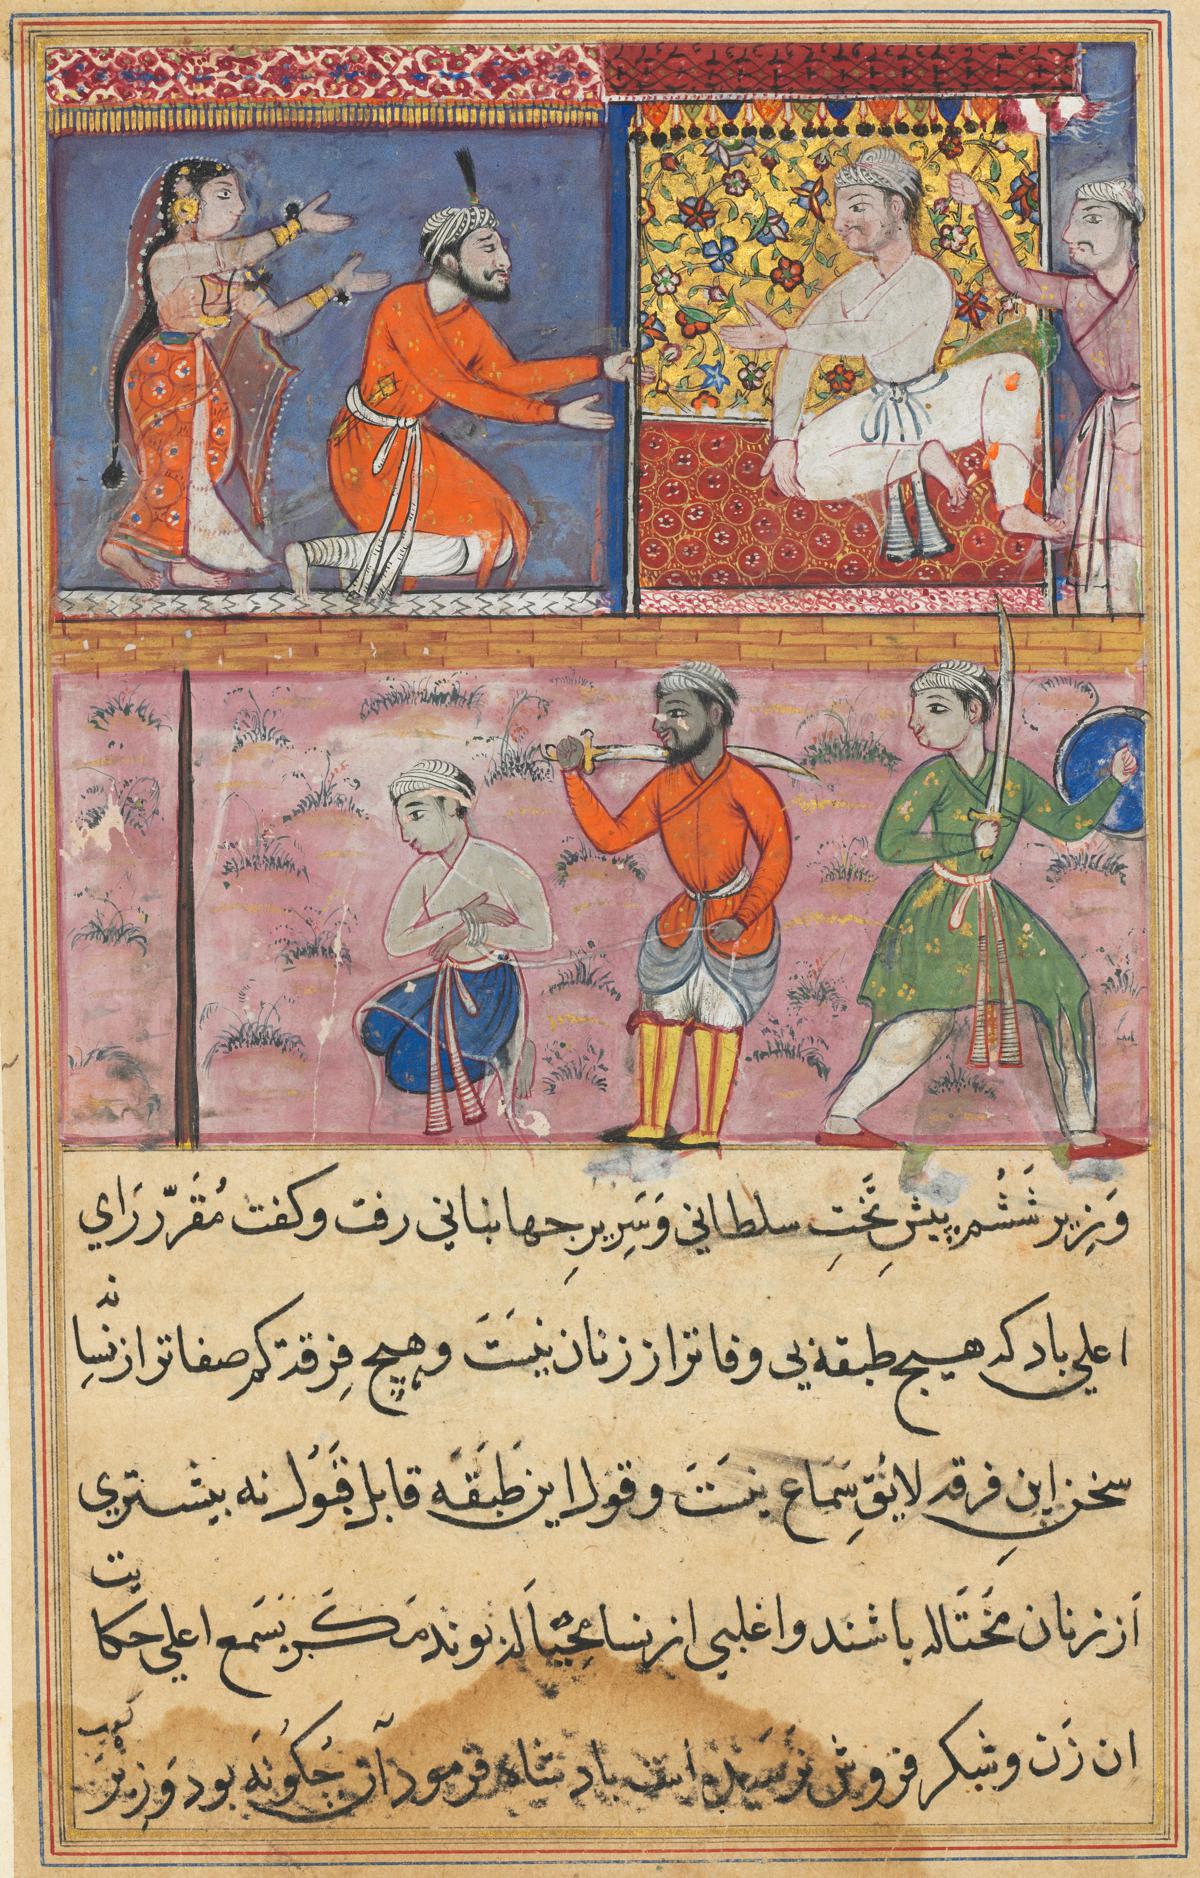 وَزِیرِ شَشُم پیشِ تَختِ سلطانی وَسَرِیرِ جهابنانی رفت وکفت مُقَرّرِ رَای
اعلی باد که هیچ طبقه بی وفاتر از زنان نیسَت وهیچ فِرقة کم صفاتر از نِسا نَه
سخنِ این فرقه لایُقِ سَماع نیسَت وقول این طَبَقَه قابل قَبُول نه بیشتری
از زنان مَُختَاله باشند واغلبی از نسا مُحِیاله بوند مَکَر بسَمع اعلی حکایت
ان زَن وشکر فروش نرسَیده است بادشاه فرمود آن چکونَه بود وَزِیر کفت